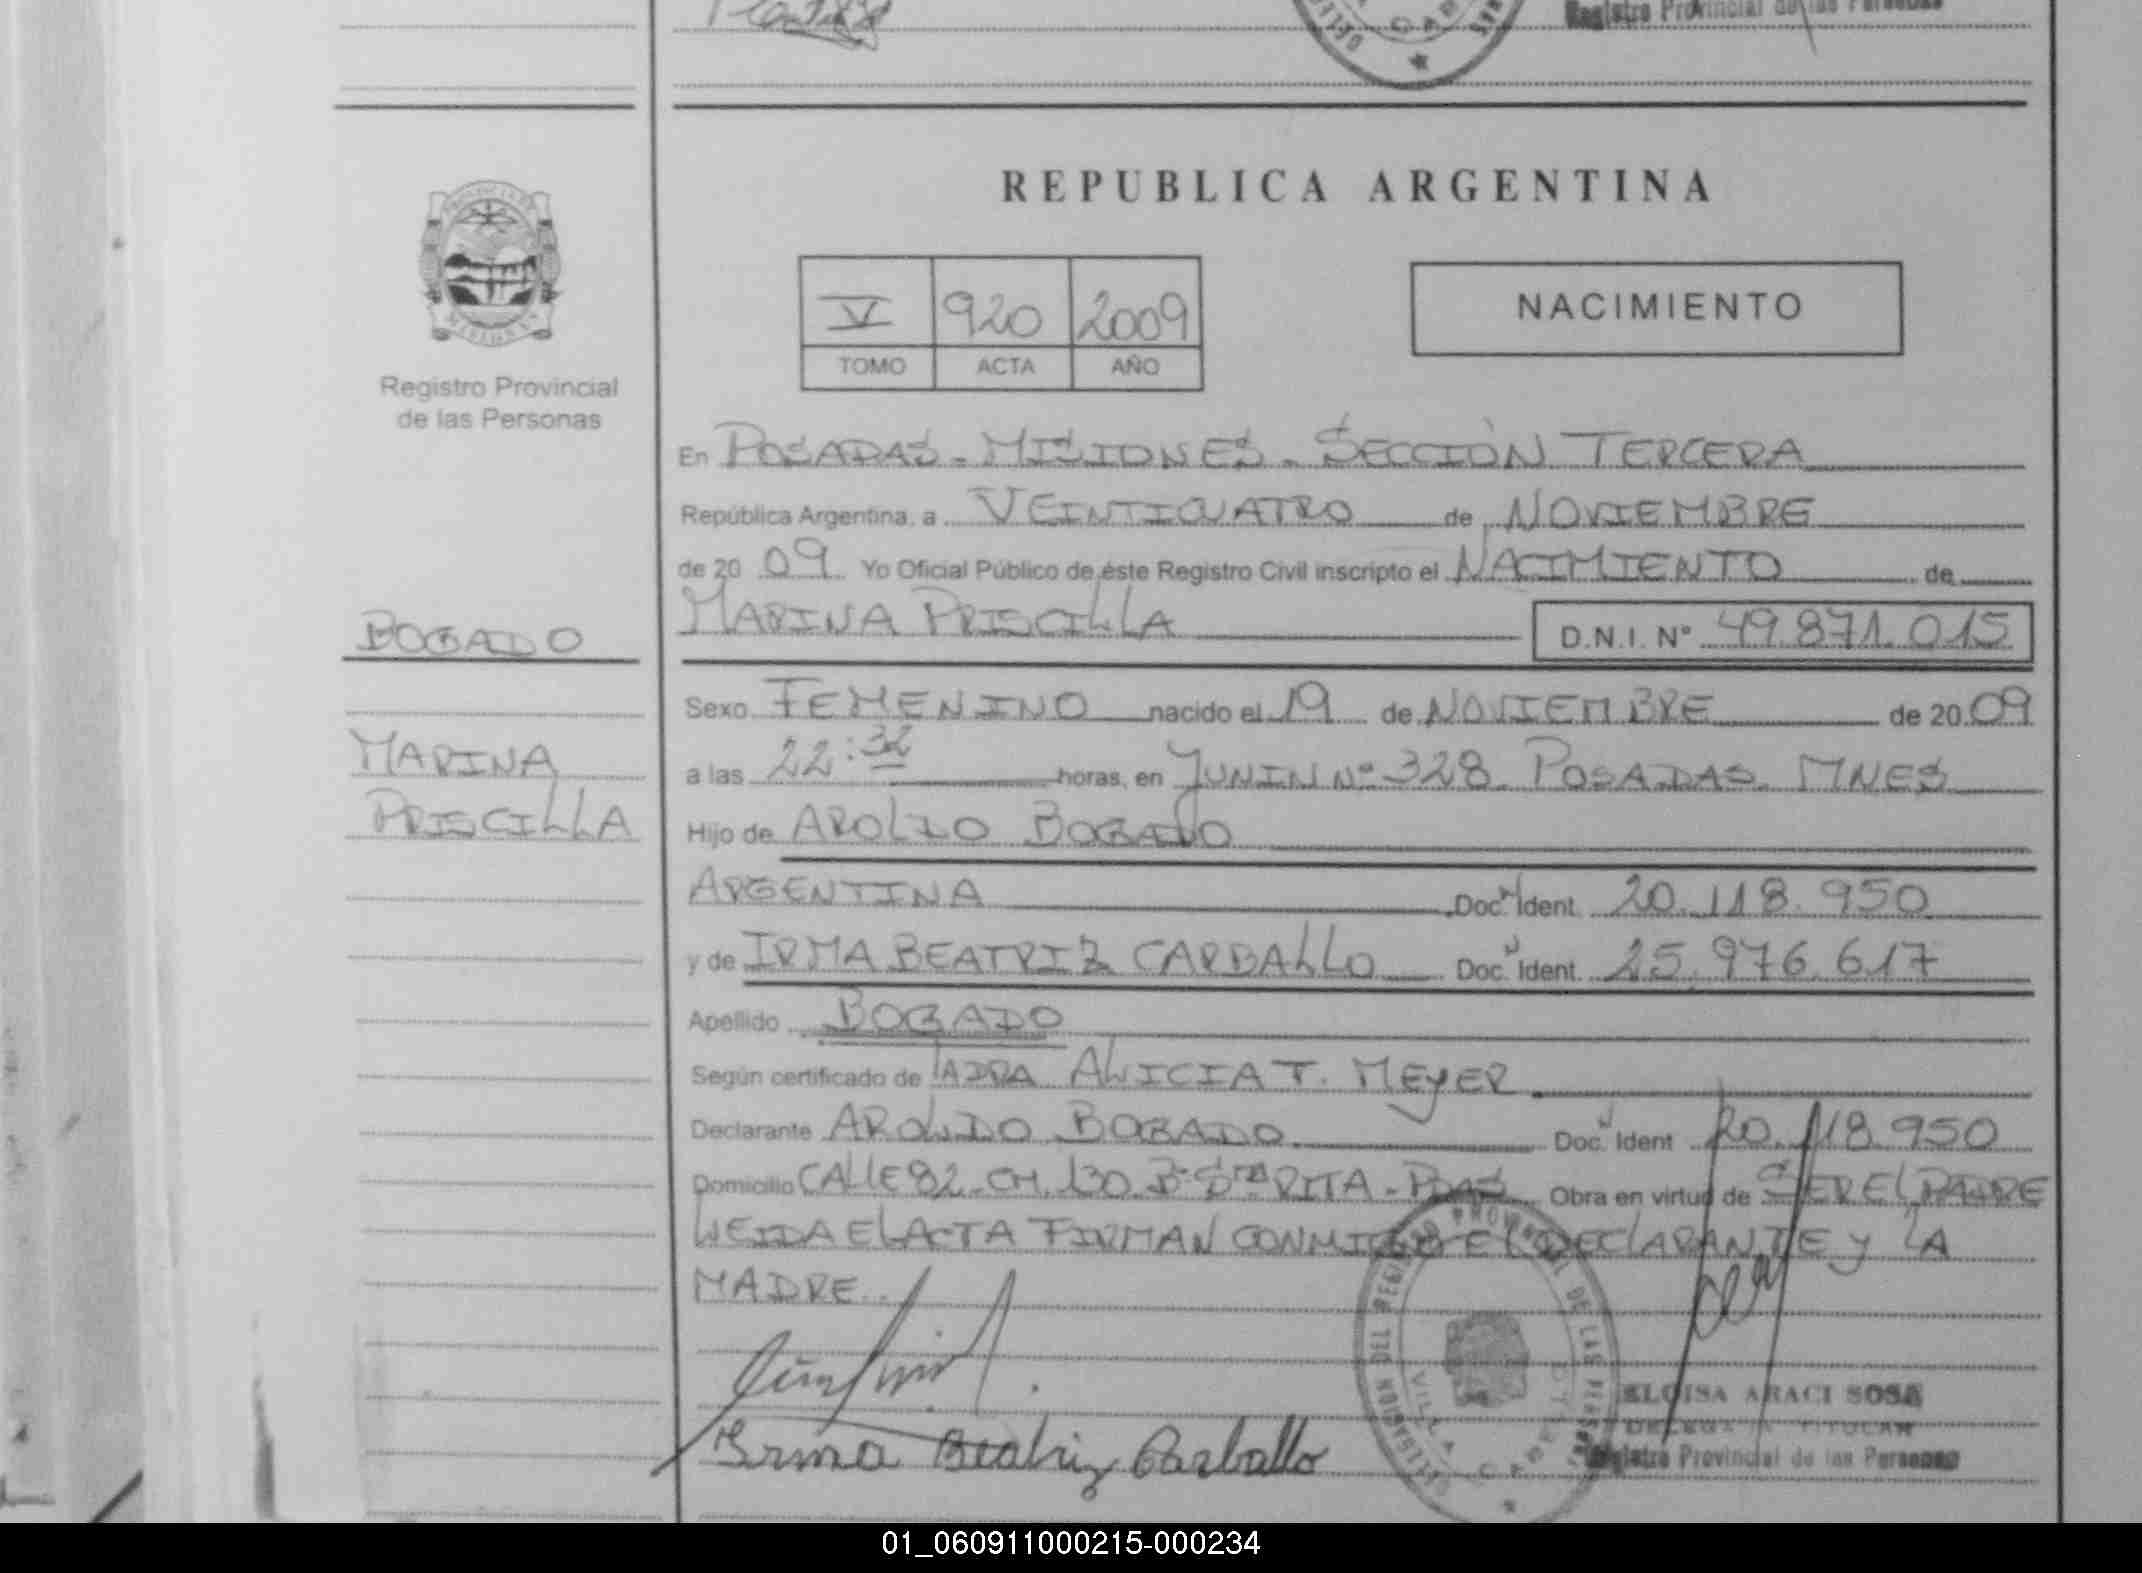 Registro Provincial de las Personas
REPUBLICA ARGENTINA
V 920 2009
TOMO ACTA AÑO
NACIMIENTO
Registro Provincial
de las Personas
BOGADO
MARINA
PRISCILLA
En POSADAS - MISIONES - SECCIÓN TERCERA
República Argentina, a VEINTICUATRO de NOVIEMBRE
de 20 09 Yo Oficial Público de éste Registro Civil inscripto el NACIMIENTO de
MARINA PRISCILLA D.N.I. N° 49.871.015
Sexo FEMENINO nacido el 19 de NOVIEMBRE de 20 09
a las 22:32 horas, en JUNIN Nº 328. POSADAS. MNES
Hijo de AROLDO BOGADO
ARGENTINA Doc. Ident. 20.118.950
y de IRMA BEATRIZ CARBALLO Doc. Ident. 25.976.617
Apellido BOGADO
Según certificado de LA DRA ALICIA T. MEYER
Declarante AROLDO BOGADO Doc. Ident 20.118.950
Domicilio CALLE 82 - CH. 130 Bº STA RITA - PDAS Obra en virtud de SER EL PADRE
LEIDA EL ACTA FIRMAN CONMIGO EL DECLARANTE y LA
MADRE.
Irma Beatriz Carballo
DELEGACION DEL REGISTRO PROVINCIAL DE LAS PERSONAS
VILLA CABELLO
ELOISA ARACI SOSA
DELEGADA TITULAR
Registro Provincial de las Personas
01_060911000215-000234